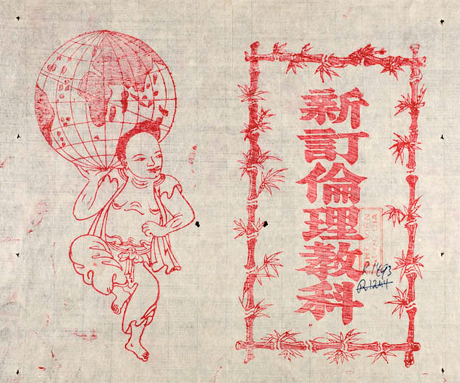 新訂倫理教科
R1693
R1244